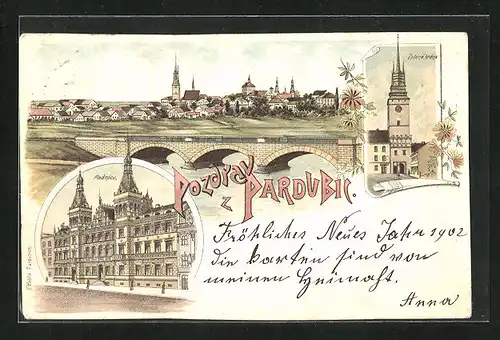 Zelená brána
Radnice.
POZDRAV
z PARDUBIC.
Fröhliches Neues Jahr 1902
die karten sind von
meinen Heimaft.
Anna